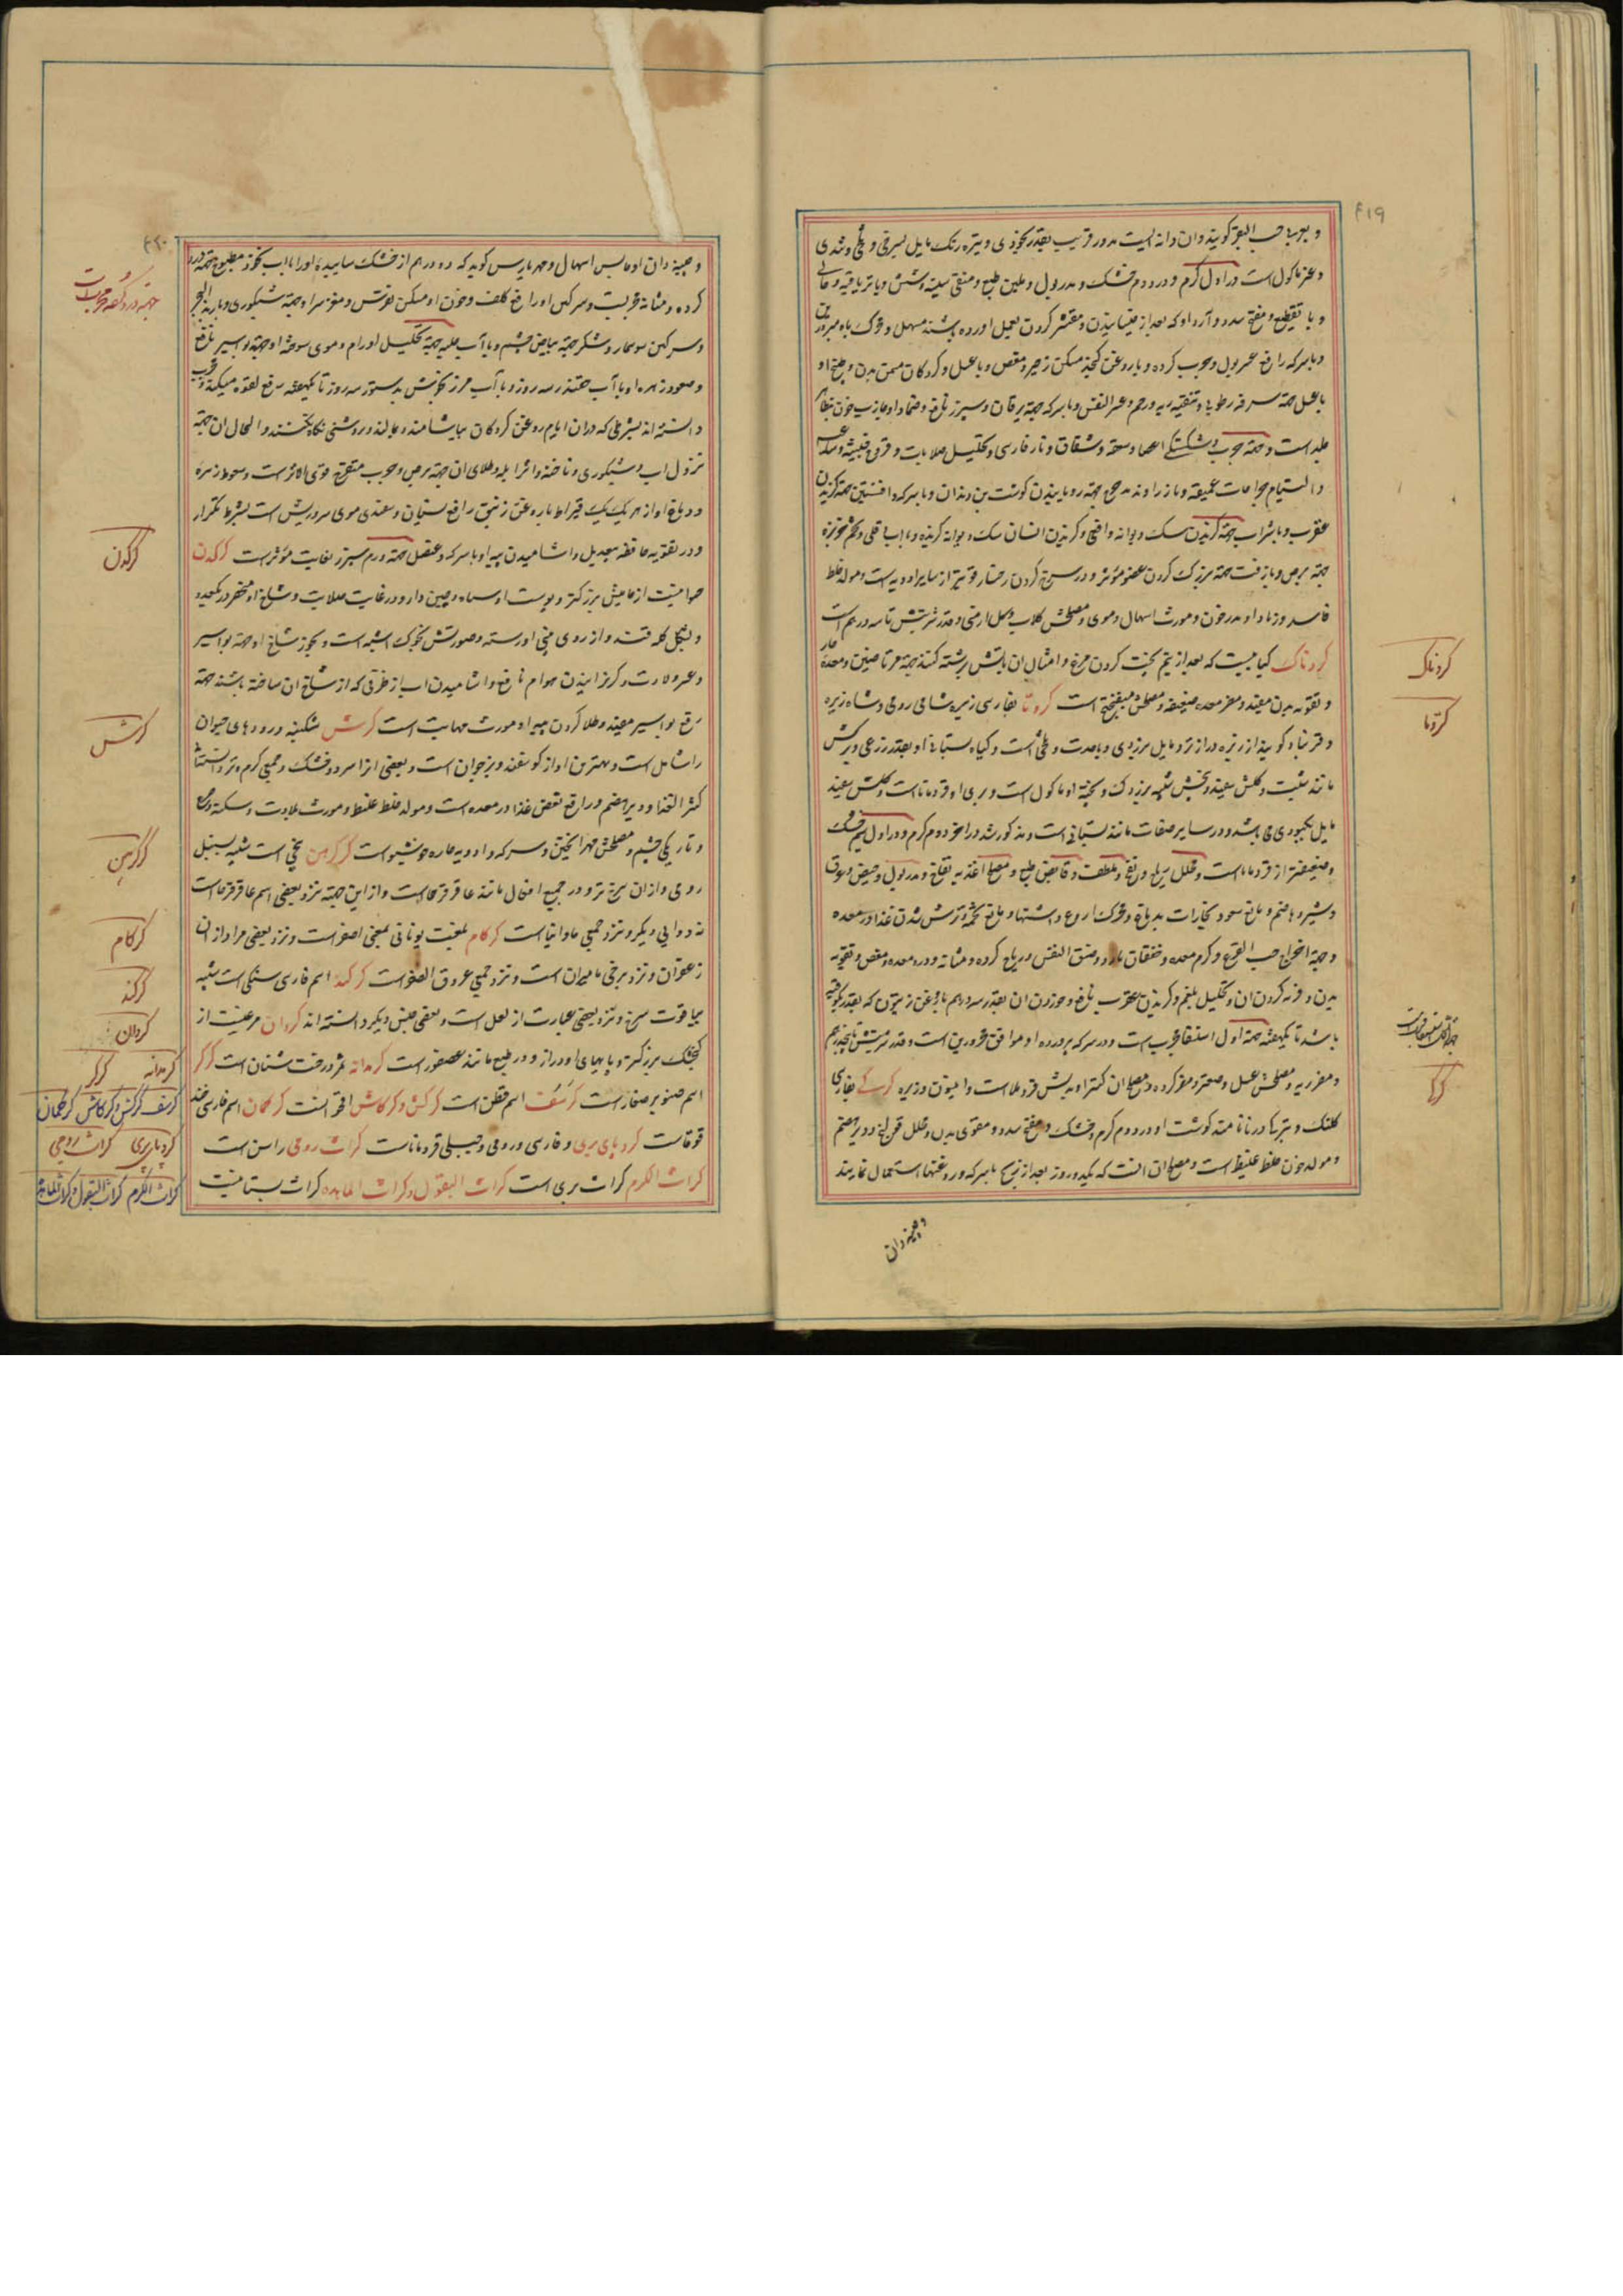 ۴۱۹
و بعربی حب البقر کویند و ان دانه ایست مدور قریب بقدر نخودی و تیره رنک مایل بسرخی و تلخی و تندی
و غیر ماکول است در اول کرم و در دوم خشک و مدر بول و ملین طبع و منقی سینه و شش و با تریاقیه و
و با تقطیع و مفتح سدد و آرد او که بعد از خیسانیدن و مقشر کردن بعمل اورده باشند مسهل و محرک باه
و با سرکه رافع عسر بول و مجرب کرده و با روغن کنجد مسکن زحیر و مغص و با عسل و کردکان مسمن بدن و طبیخ او
با عسل جهة سرفه رطوبی و تنقیه ریه و رحم و عسر النفس و با سرکه جهة یرقان و سپرز نافع و ضماد او جاذب خون بظاهر
جلد است و جهة جرب و شکستکی اعضا و سعفه و شقاق و نار فارسی و تحلیل صلابات و قروح خبیثه
و التیام جراحات عمیقه و با زراوند مدحرج جهة رویانیدن کوشت بن دندان و با سرکه و افسنتین جهة کزیدن
عقرب و با شراب جهة کزیدن سک دیوانه و افعی و کزیدن انسان سک دیوانه کزیده و با اب باقلی و تخم خربزه
جهة برص و با زفت جهة بزرک کردن عضو مؤثر و در سرخ کردن رخسار قویتر از سایر ادویه است و مولد خلط
فاسد و زیاد او مدر خون و مورث اسهال دموی و مصلحش کلاب و کل ارمنی و قدر شربتش تا سه درهم است
کردناک کبابیست که بعد از نیم پخت کردن مرغ و امثال ان باتش برشته کنند جهة مرتاضین و معده حار
و تقویه بدن مفید و مضر معده ضعیفه و مصلحش میفختج است کرویا بفارسی زیره شامی رومی و شاه زیره
و قرنباد کویند از زیره درازتر و مایل بزردی و با حدت و تلخی است و کیاه بستانی او بقدر زرعی و برکش
مانند شبت و کلش سفید و بیخش شبیه بزردک و پخته او ماکول است و بری او قردمانا است و کلش سفید
مایل بکبودی می باشد و در سایر صفات مانند بستانی است و مذکور شد در اخر دوم کرم و در اول سیم خشک
و ضعیفتر از قردمانا است و محلل ریاح و نفخ و ملطف و قابض طبع و مصلح اغذیه نفاخ و مدر بول و حیض و عرق
و شیر و هاضم و مانع صعود بخارات بدماغ و محرک اروغ و اشتها و مانع تخمه و ترش شدن غذا در معده
و جهة اخراج حب القرع و کرم معده و خفقان بارد و ضیق النفس و ریاح کرده و مثانه و درد معده و مغص و تقویه
بدن و فربه کردن ان و تحلیل بلغم و کزیدن عقرب نافع و خوردن ان بقدر سه درهم با روغن زیتون که بقدر یکوقیه
باشد تا یکهفته جهة اول استسقا مجرب است و در سرکه پرورده او موافق محرورین است و قدر شربتش تا پنجدرهم
و مضر ریه و مصلحش عسل و صعتر و مضر کرده و مصلح ان کتیرا و بدلش قردمانا است و انیسون و زیره کرکی بفارسی
کلنک و بترکی درنا نامند کوشت او در دوم کرم و خشک و مفتح سدد و مقوی بدن و محلل قولنج و دیر هضم
و مولد خون غلیظ است و مصلح ان انست که یکدو روز بعد از ذبح با سرکه و روغنها استعمال نمایند
و چینه دان
کردناک
کرویا
کرکی
۴۲۰
و چینه دان او حابس اسهال و مهریارس کوید که ده درهم از خشک ساییده او را با اب نخود مطبوخ جهة درد
کرده و مثانه مجربست و سرکین او رافع کلف و خون او مسکن نقرس و مغز سر او جهة شبکوری و با زبد البحر
و سرکین سوسمار و شکر جهة بیاض چشم و با آب حلبه جهة تحلیل اورام و موی سوخته او جهة بواسیر نافع
و سعوط زهره او با آب چقندر سه روز و با آب مرزنجوش بدستور سه روز تا یکهفته رفع لقوه میکند و مجرب
دانسته اند بشرطی که دران ایام روغن کردکان بیاشامند و بمالند و روشنی نکاه نکنند و اکتحال ان جهة
نزول اب و شبکوری و ناخنه و اثر ابله و طلای ان جهة برص و جرب متقرح قوی الاثر است و سعوط زهره
و دماغ او از هر یک یک قیراط با روغن زنبق رافع نسیان و سفیدی موی سر و ریش است بشرط تکرار
و در تقویه حافظه بیعدیل و اشامیدن پیه او با سرکه و عنصل جهة ورم سپرز بغایت مؤثر است کرکدن
حیوانیست از جامیش بزرکتر و پوست او سیاه و چین دار و در غایت صلابت و شاخ او منحصر در یکعدد
و بشکل کله قند و از روی بینی او رسته و صورتش بخوک اشبه است و بخور شاخ او جهة بواسیر
و عسر ولادت و کریزانیدن هوام نافع و اشامیدن اب از ظرفی که از شاخ ان ساخته باشند جهة
رفع بواسیر مفید و طلا کردن پیه او مورث مهابت است کرش شکنبه و روده های حیوان
را شامل است و بهترین او از کوسفند و بز جوان است و بعضی انرا سرد و خشک و جمعی کرم و تر دانسته اند
کثیر الغذا و دیر هضم و رافع تعفن غذا در معده است و مولد خلط غلیظ و مورث بلادت و سکته و صرع
و تاریکی چشم و مصلحش مهرا پختن و سرکه و ادویه حاره خوشبو است کرکرهن بیخی است شبیه بسنبل
رومی و از ان سرخ تر و در جمیع افعال مانند عاقرقرحا است و از این جهة نزد بعضی اسم عاقرقرحا است
نه دوایی دیکر و نزد جمعی ماوانیا است کرکام لغت یونانی بمعنی اصفر است و نزد بعضی مراد از ان
زعفران و نزد برخی مامیران است و نزد جمعی عروق الصفر است کرکند اسم فارسی سنکی است شبیه
بیاقوت سرخ و نزد بعضی عبارت از لعل است و بعضی جنس دیکر دانسته اند کروان مرغیست از
کنجشک بزرکتر و پاهای او دراز و در طبع مانند عصفور است کرمدانه ثمر درخت مثنان است کرکر
اسم صنوبر صغار است کرسف اسم قطن است کرکش و کرکاش اقحوانست کرکمان اسم فارسی
قوقاست کرویای بری و فارسی و رومی و جبلی قردمانا است کراث رومی راسن است
کراث الکرم کراث بری است کراث البقول و کراث المایده کراث بستانیست
کرکدن
کرش
کرکرهن
کرکام
کرکند
کروان
کرمدانه کرکر
کرسف کرکش و کرکاش کرکمان
کرویای بری کراث رومی
کراث الکرم کراث البقول و کراث المایده